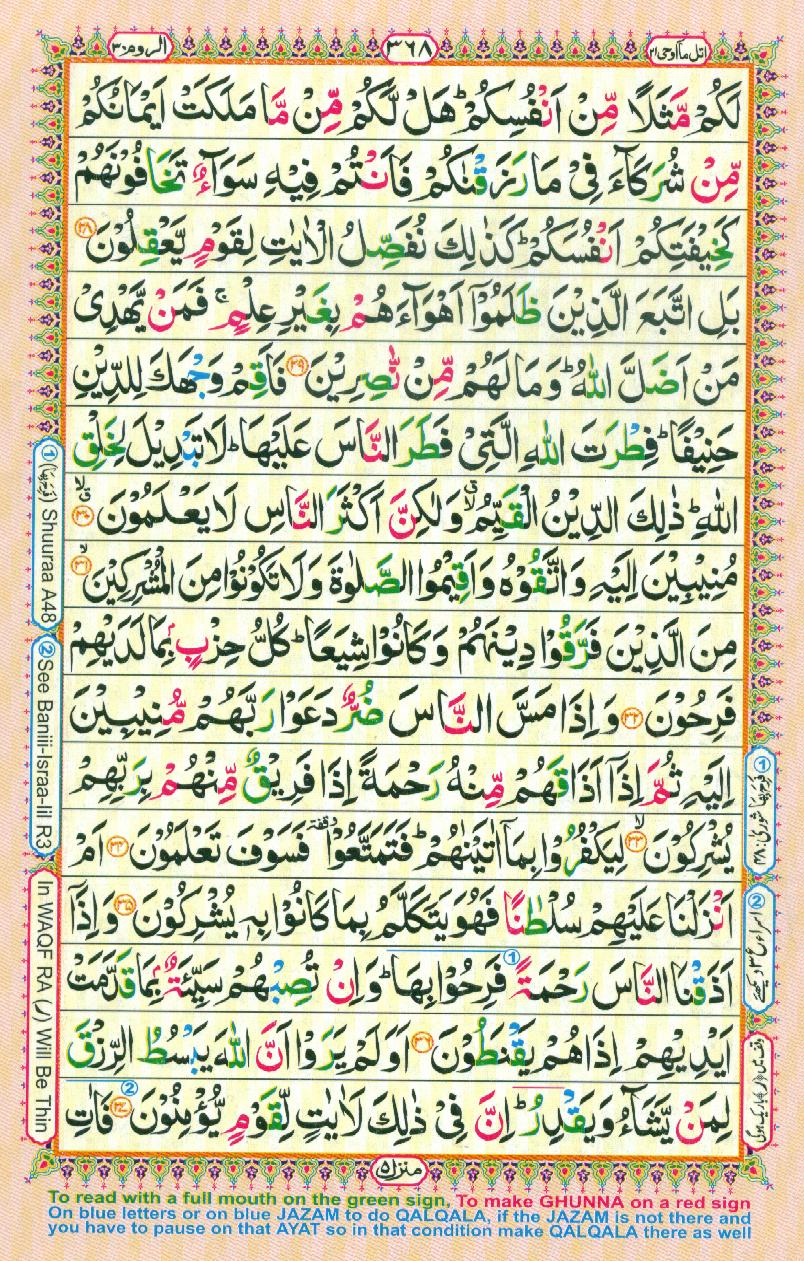 اتل ما اوحی ۲۱
۳۶۸
الروم ۳۰
لَكُمْ مَّثَلًا مِّنْ اَنْفُسِكُمْ ؕ هَلْ لَّكُمْ مِّنْ مَّا مَلَكَتْ اَيْمَانُكُمْ
مِّنْ شُرَكَآءَ فِیْ مَا رَزَقْنٰكُمْ فَاَنْتُمْ فِيْهِ سَوَآءٌ تَخَافُوْنَهُمْ
كَخِيْفَتِكُمْ اَنْفُسَكُمْ ؕ كَذٰلِكَ نُفَصِّلُ الْاٰيٰتِ لِقَوْمٍ يَّعْقِلُوْنَ ۲۸
بَلِ اتَّبَعَ الَّذِيْنَ ظَلَمُوْۤا اَهْوَآءَهُمْ بِغَيْرِ عِلْمٍ ۚ فَمَنْ يَّهْدِیْ
مَنْ اَضَلَّ اللّٰهُ ؕ وَمَا لَهُمْ مِّنْ نّٰصِرِيْنَ ۲۹ فَاَقِمْ وَجْهَكَ لِلدِّيْنِ
حَنِيْفًا ؕ فِطْرَتَ اللّٰهِ الَّتِیْ فَطَرَ النَّاسَ عَلَيْهَا ؕ لَا تَبْدِيْلَ لِخَلْقِ
اللّٰهِ ؕ ذٰلِكَ الدِّيْنُ الْقَيِّمُ ۙۗ وَلٰكِنَّ اَكْثَرَ النَّاسِ لَا يَعْلَمُوْنَ ۳۰ ۗۙ
مُنِيْبِيْنَ اِلَيْهِ وَاتَّقُوْهُ وَاَقِيْمُوا الصَّلٰوةَ وَلَا تَكُوْنُوْا مِنَ الْمُشْرِكِيْنَ ۳۱ ۙ
مِنَ الَّذِيْنَ فَرَّقُوْا دِيْنَهُمْ وَكَانُوْا شِيَعًا ؕ كُلُّ حِزْبٍۭ بِمَا لَدَيْهِمْ
فَرِحُوْنَ ۳۲ وَاِذَا مَسَّ النَّاسَ ضُرٌّ دَعَوْا رَبَّهُمْ مُّنِيْبِيْنَ
اِلَيْهِ ثُمَّ اِذَاۤ اَذَاقَهُمْ مِّنْهُ رَحْمَةً اِذَا فَرِيْقٌ مِّنْهُمْ بِرَبِّهِمْ
يُشْرِكُوْنَ ۳۳ ۙ لِيَكْفُرُوْا بِمَاۤ اٰتَيْنٰهُمْ ؕ فَتَمَتَّعُوْا وقفة فَسَوْفَ تَعْلَمُوْنَ ۳۴ اَمْ
اَنْزَلْنَا عَلَيْهِمْ سُلْطٰنًا فَهُوَ يَتَكَلَّمُ بِمَا كَانُوْا بِهٖ يُشْرِكُوْنَ ۳۵ وَاِذَاۤ
اَذَقْنَا النَّاسَ رَحْمَةً ① فَرِحُوْا بِهَا ؕ وَاِنْ تُصِبْهُمْ سَيِّئَةٌۢ بِمَا قَدَّمَتْ
اَيْدِيْهِمْ اِذَا هُمْ يَقْنَطُوْنَ ۳۶ اَوَلَمْ يَرَوْا اَنَّ اللّٰهَ يَبْسُطُ الرِّزْقَ
لِمَنْ يَّشَآءُ وَيَقْدِرُ ؕ اِنَّ فِیْ ذٰلِكَ لَاٰيٰتٍ لِّقَوْمٍ يُّؤْمِنُوْنَ ② ۳۷ فَاٰتِ
① فرح بها شوریٰ: ۴۸
② اسراء ع۳ دیکھئے
وقف میں (ر) باریک ہوگی
① (فرح بها) Shuuraa A48
② See Baniii-Israa-Iil R3
In WAQF RA (ر) Will Be Thin
منزل ۵
To read with a full mouth on the green sign, To make GHUNNA on a red sign
On blue letters or on blue JAZAM to do QALQALA, if the JAZAM is not there and
you have to pause on that AYAT so in that condition make QALQALA there as well